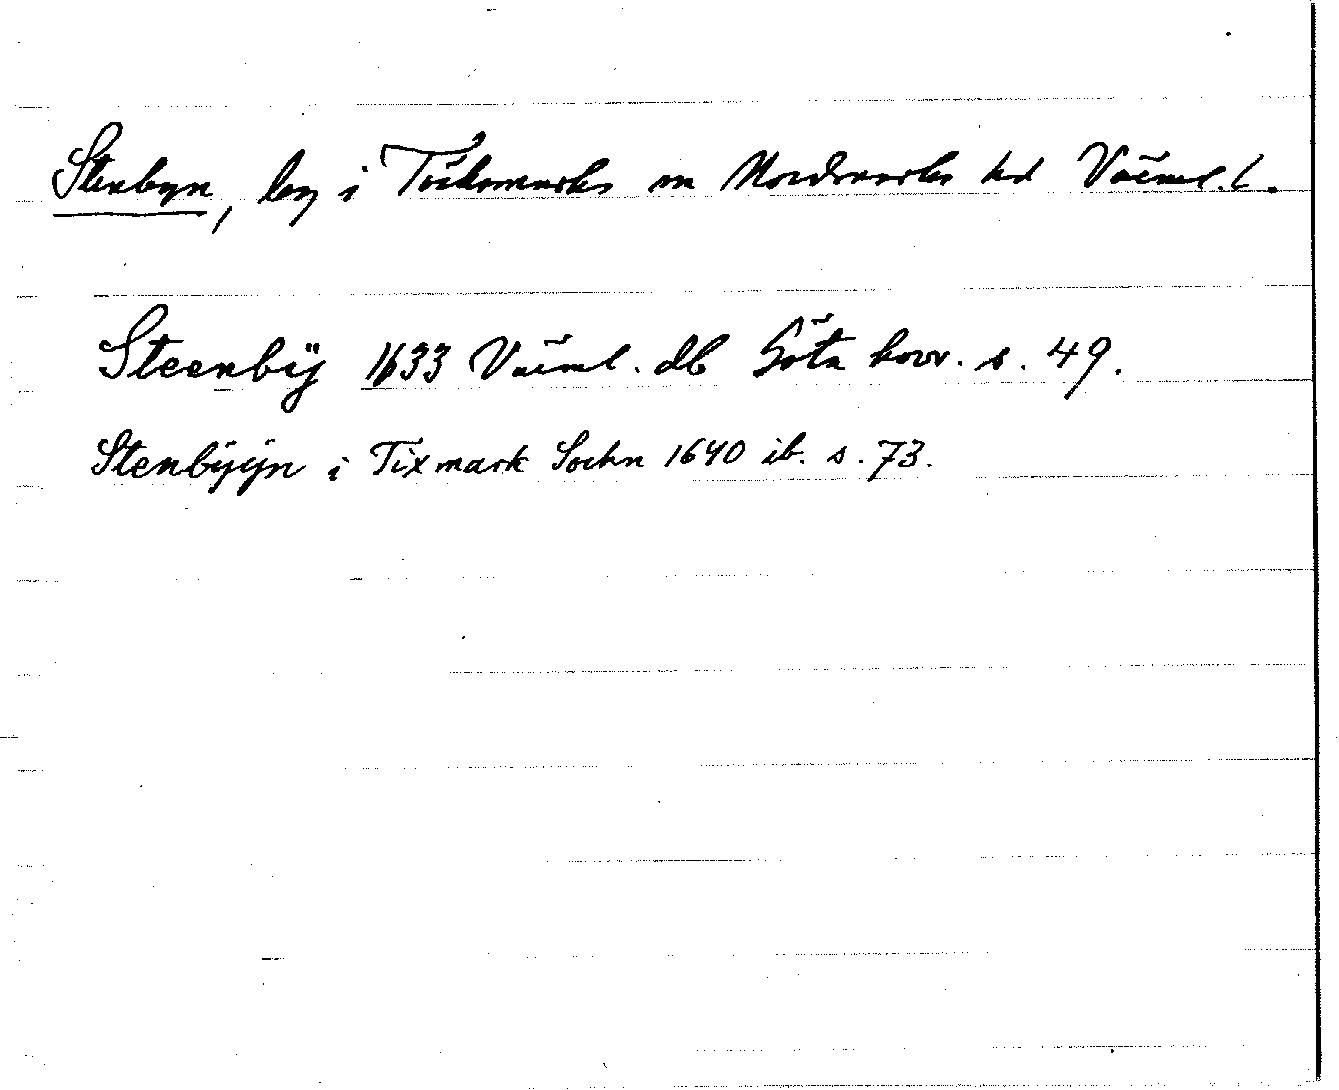 Stenbyn, by i Töcksmarks sn Nordmarks hd Värml. l.
Steenbÿ 1633 Värml. db Göta hovr. s. 49.
Stenbÿÿn i Tixmark Sochn 1640 ib. s. 73.